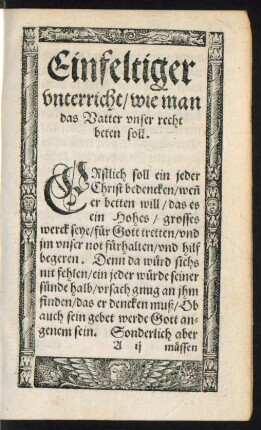 Einfeltiger
vnterricht/wie man
das Vatter vnser recht
beten soll.
ERstlich soll ein jeder
Christ bedencken/weñ
er betten will/das es
ein Hohes/ grosses
werck seye/für Gott tretten/vnd
jm vnser not fürhalten/vnd hilf
begeren. Denn da würd sichs
nit fehlen/ein jeder würde seiner
sünde halb/vrsach gnug an jhm
finden/das er dencken muß/Ob
auch sein gebet werde Gott an-
genem sein. Sonderlich aber
A ij müssen